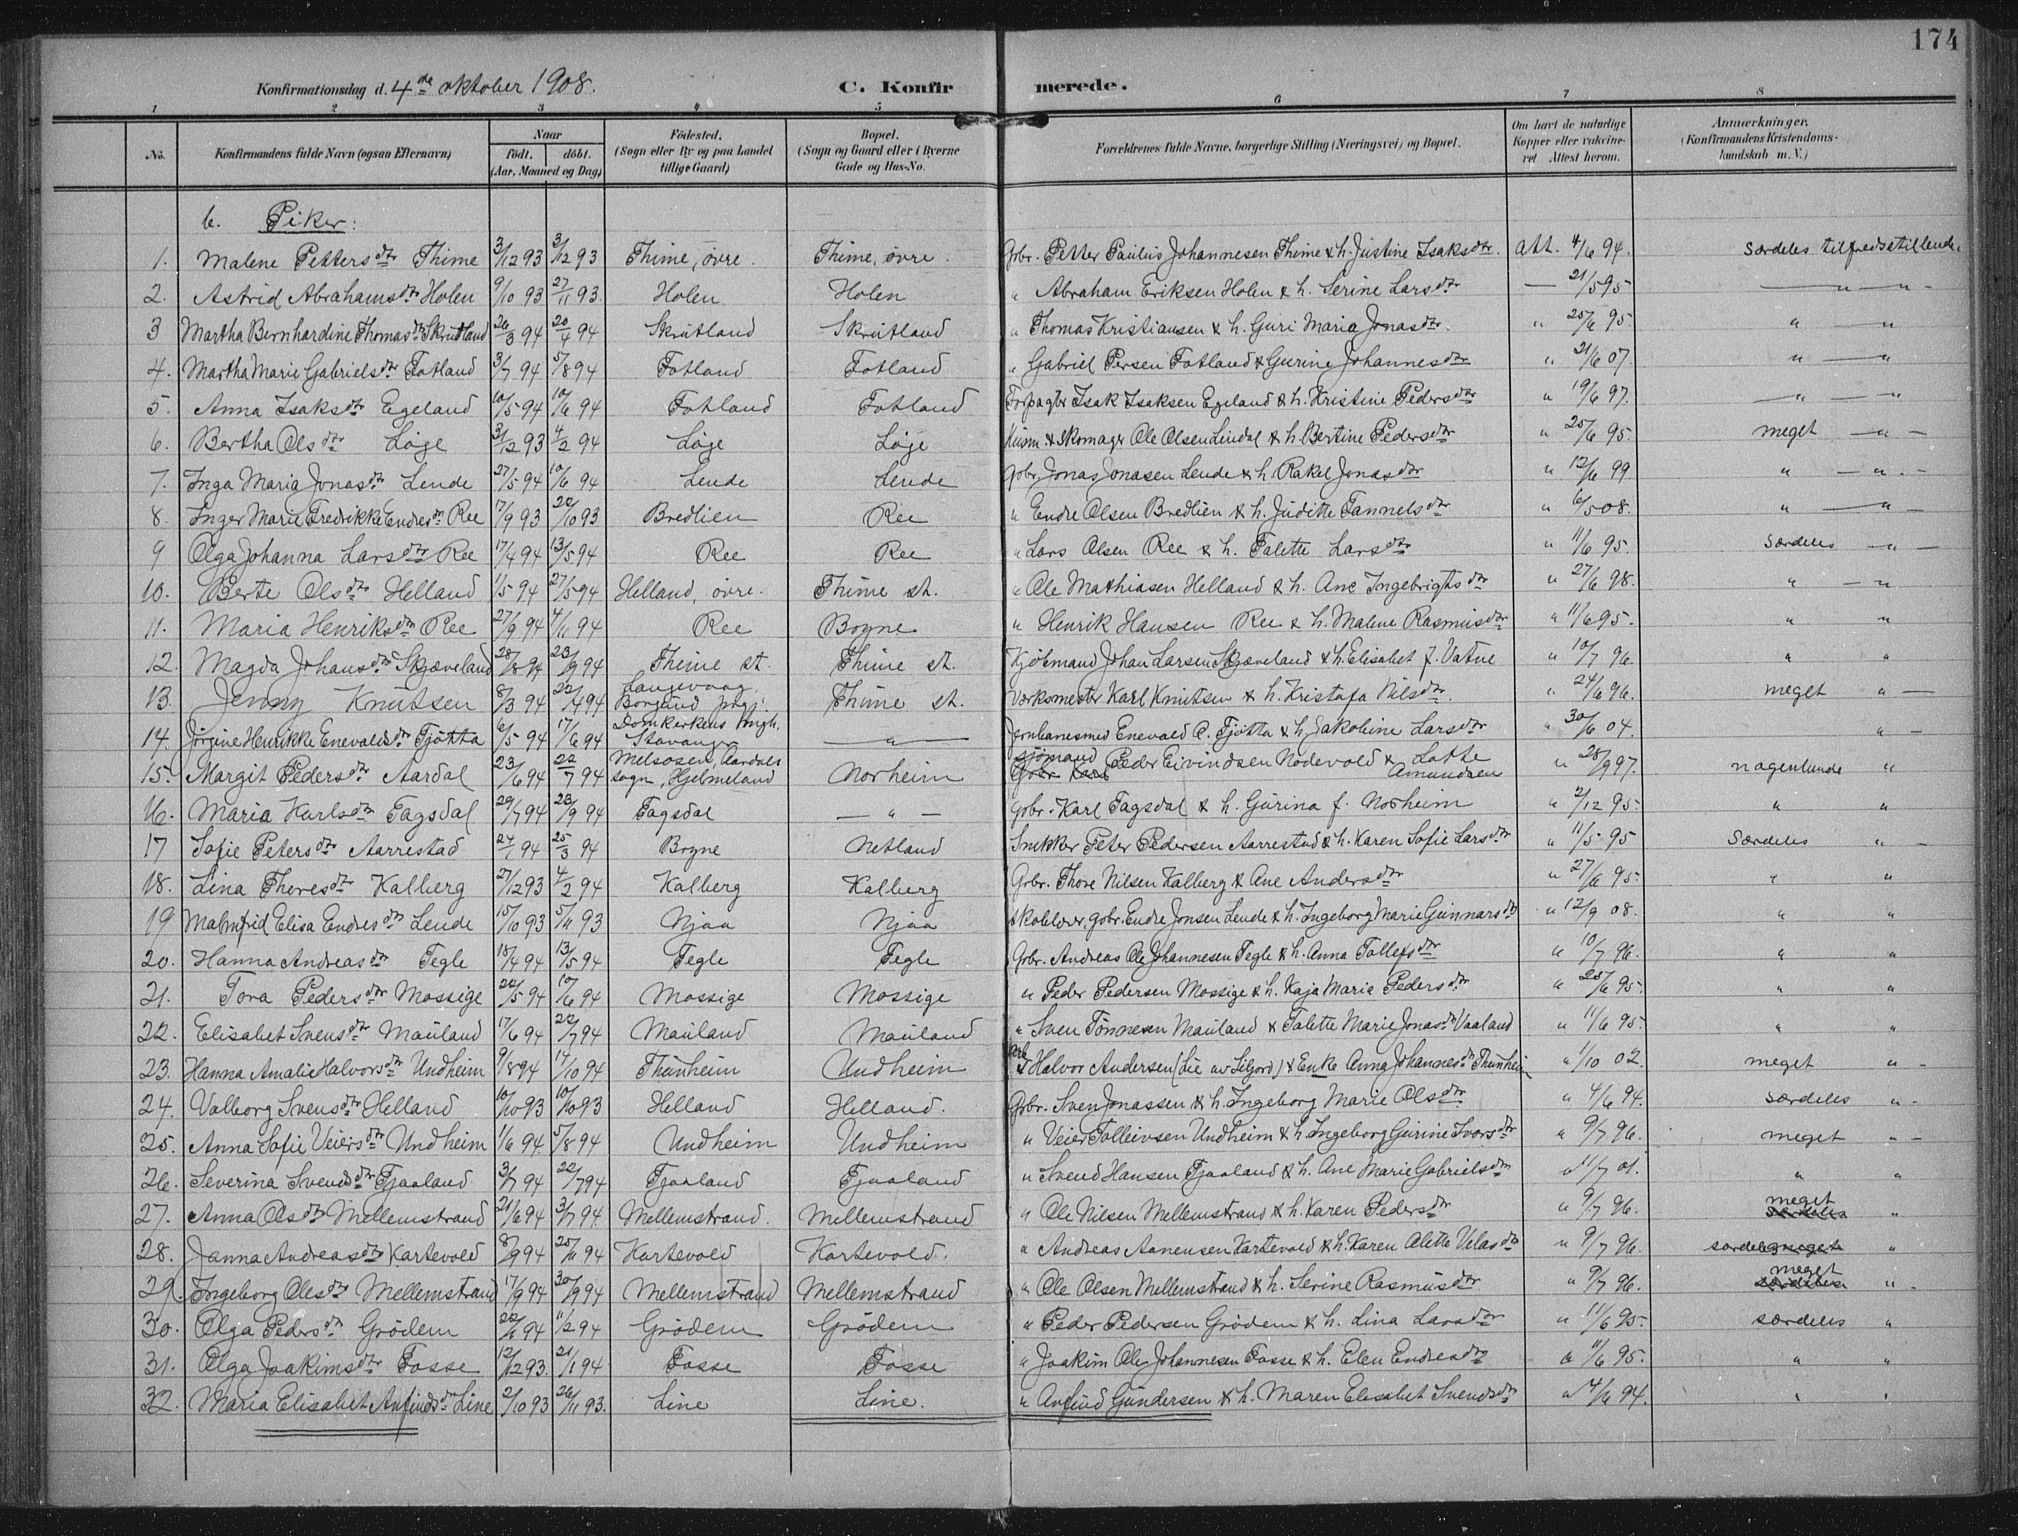 174
Konfirmationsdag d. 4de oktober 1908. C. Konfirmerede.
1 2 3 4 5 6 7 8
No. Konfirmandens fulde Navn (ogsaa Efternavn) Naar født. døbt. (Aar, Maaned og Dag) Fødested. (Sogn eller By og paa Landet tillige Gaard) Bopæl. (Sogn og Gaard eller i Byerne Gade og Hus-No. Forældrenes fulde Navne, borgerlige Stilling (Næringsvei) og Bopæl. Om havt de naturlige Kopper eller vaccineret Attest herom. Anmærkninger. (Konfirmandens Kristendomskundskab m. V.)
b. Piker:
1. Malene Pettersdtr Thime 3/12 93 3/12 93 Thime, övre. Thime, övre. Gbr. Petter Paulus Johannesen Thime & h. Justine Isaksdtr. Att. 4/6 94. Særdeles tilfredsstillende
2. Astrid Abrahamsdtr Holen 9/10 93 27/11 93. Holen Holen " Abraham Eriksen Holen & h. Serine Larsdtr — 21/5 95 — " — " —
3 Martha Bernhardine Thomasdtr Skrudland 26/3 94 20/4 94 Skrutland Skrutland " Thomas Kristiansen & h. Guri Maria Jonasdtr. " 25/6 95 " — "
4. Martha Marie Gabrielsdtr Fotland 3/7 94 5/8 94 Fotland Fotland " Gabriel Persen Fotland & Gurine Johannesdtr " 21/6 07 " — "
5. Anna Isaksdtr Egeland 10/5 94 10/6 94 Fotland Fotland Forpagter Isak Isaksen Egeland & h. Kristine Pedersdtr " 19/6 97. — " — " —
6. Bertha Olsdtr Löge 31/12 93 4/2 94 Löge Löge Husm. & skomager Ole Olsen Lindal & h. Bertine Pedersdtr " 25/6 95. meget — " —
7. Inga Maria Jonasdtr Lende 27/5 94 10/6 94 Lende Lende Gbr. Jonas Jonasen Lende & h. Rakel Jonasdtr " 12/6 99 " — " —
8. Inger Marie Fredrikke Endresdtr Ree 17/9 93 22/10 93 Bredlien Ree " Endre Olsen Bredlien & h. Judithe Tannelsdtr " 6/5 08. " — " —
9 Olga Johanna Larsdtr Ree 17/4 94 13/5 94 Ree Ree " Lars Olsen Ree & h. Talette Larsdtr " 11/6 95. Særdeles — " —
10. Berte Olsdtr Helland 1/5 94 27/5 94 Helland, övre. Thime st. " Ole Mathiasen Helland & h. Ane Ingebrigtsdtr " 27/6 98. " — "
11. Maria Henriksdtr Ree 27/9 94 4/11 94 Ree Bryne " Henrik Hansen Ree & h. Malene Rasmusdtr " 11/6 95. " "
12. Magda Johansdtr Skjæveland 28/8 94 23/9 94 Thime st. Thime st. Kjöbmand Johan Larsen Skjæveland & h. Elisabet f. Vatne " 10/7 96. " "
13. Jenny Knutsen 8/3 94 22/4 94 Langevaag, Borgund Thime st. Værksmester Karl Knutsen & h. Kristofa Nilsdtr. " 24/6 96. meget " —
14. Jörgine Henrikke Enevaldsdtr Tjötta 6/5 94 17/6 94 Domkirkens mngh. Stavanger — " — Jernbanesmed Enevald A. Tjötta & h. Jakobine Larsdtr " 30/6 04. " -
15. Margit Pedersdtr Aardal 23/6 94 22/7 94 Melsosen, Aardals sogn, Hjelmeland Norheim sjömand Peder Eivindsen Nödevold & Lotte Amundsen " 28/9 97. nogenlunde "
16. Maria Karlsdtr Fagsdal 29/7 94 23/9 94 Tagsdal — " — Gbr. Karl Tagsdal & h. Gurina f. Norheim " 2/12 95 " "
17 Sofie Petersdtr Aarrestad 24/1 94 25/3 94 Bryne Netland Snekker Peter Pedersen Aarrestad & h. Karen Sofie Larsdtr " 11/5 95 Særdeles " —
18. Lina Thoresdtr Kalberg 27/12 93 4/2 94 Kalberg Kalberg Gbr. Thore Nilsen Kalberg & Ane Andersdtr " 27/6 95. " "
19 Malmfrid Elisa Endresdtr Lende 15/10 93 5/11 93 Njaa Njaa Skolelærer, gbr. Endre Jonsen Lende & h. Ingeborg Marie Gunnarsdtr " 12/9 08. " "
20. Hanna Andreasdtr Tegle 18/4 94 13/5 94 Tegle Tegle Gbr. Andreas Ole Johannesen Tegle & h. Anna Tollefsdtr " 10/7 96. " "
21. Tora Pedersdtr Mossige 22/5 94 10/6 94 Mossige Mossige " Peder Pedersen Mossige & h. Kaja Maria Pedersdtr " 25/6 95. " "
22. Elisabet Svensdtr Mauland 17/6 94 22/7 94 Mauland Mauland " Sven Tönnesen Mauland & Talette Marie Jonasdtr Vaaland " 11/6 95. " "
23. Hanna Amalie Halvorsdtr Undheim 9/8 94 14/10 94 Thunheim Undheim Halvor Andersen (Lie av Siljord) & Enke Anna Johannesdtr Thunheim " 1/10 02. meget " -
24. Valborg Svensdtr Helland 10/10 93 10/10 93 Helland Helland. Gbr. Sven Jonassen & h. Ingeborg Marie Olsdtr " 4/6 94. særdeles " -
25. Anna Sofie Veiersdtr Undheim 1/6 94. 5/8 94 Undheim Undheim " Veier Tolleivsen Undheim & h. Ingeborg Gurine Ivarsdtr " 9/7 96. meget " -
26. Severina Svendsdtr Tjaaland 3/7 94 22/7 94 Tjaaland Tjaaland " Svend Hansen Tjaaland & h. Ane Marie Gabrielsdtr " 11/7 01. " "
27. Anna Olsdtr Mellemstrand 21/6 94 3/7 94 Mellemstrand. Mellemstrand " Ole Nilsen Mellemstrand & h. Karen Pedersdtr " 9/7 96. meget særdeles "
28. Janna Andreasdtr Kartevold 8/9 94 25/11 94 Kartevold Kartevold. " Andreas Aanensen Kartevold & h. Karen Olette Velasdtr " 9/7 96. særdeles meget "
29. Ingeborg Olesdtr Mellemstrand 17/9 94 30/9 94 Mellemstrand Mellemstrand " Ole Olsen Mellemstrand & h. Serine Rasmusdtr " 9/7 96. meget særdeles " -
30. Olga Pedersdtr Grödem 22/1 94 11/2 94 Grödem Grödem " Peder Pedersen Grödem & h. Lina Larsdtr " 11/6 95. særdeles "
31. Olga Joakimsdtr Fosse 12/12 93. 21/1 94 Fosse Fosse " Joakim Ole Johannesen Fosse & h. Elen Endresdtr " 11/6 95. " "
32. Maria Elisabet Anfindsdtr Line 2/10 93 26/11 93. Line Line. " Anfind Gundersen & h. Maren Elisabet Svendsdtr " 4/6 94. " "